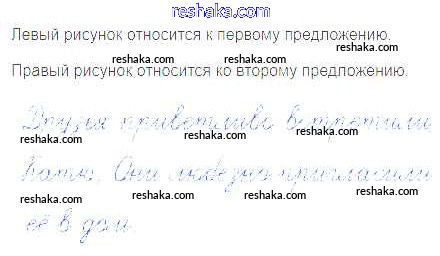 reshaka.com
Левый рисунок относится к первому предложению.
reshaka.com
reshaka.com
Правый рисунок относится ко второму предложению.
reshaka.com
reshaka.com
Друзья приветливо встретили
reshaka.com
reshaka.com
reshaka.com
Катю. Они любезно пригласили
reshaka.com
reshaka.com
reshaka.com
её в дом.
reshaka.com